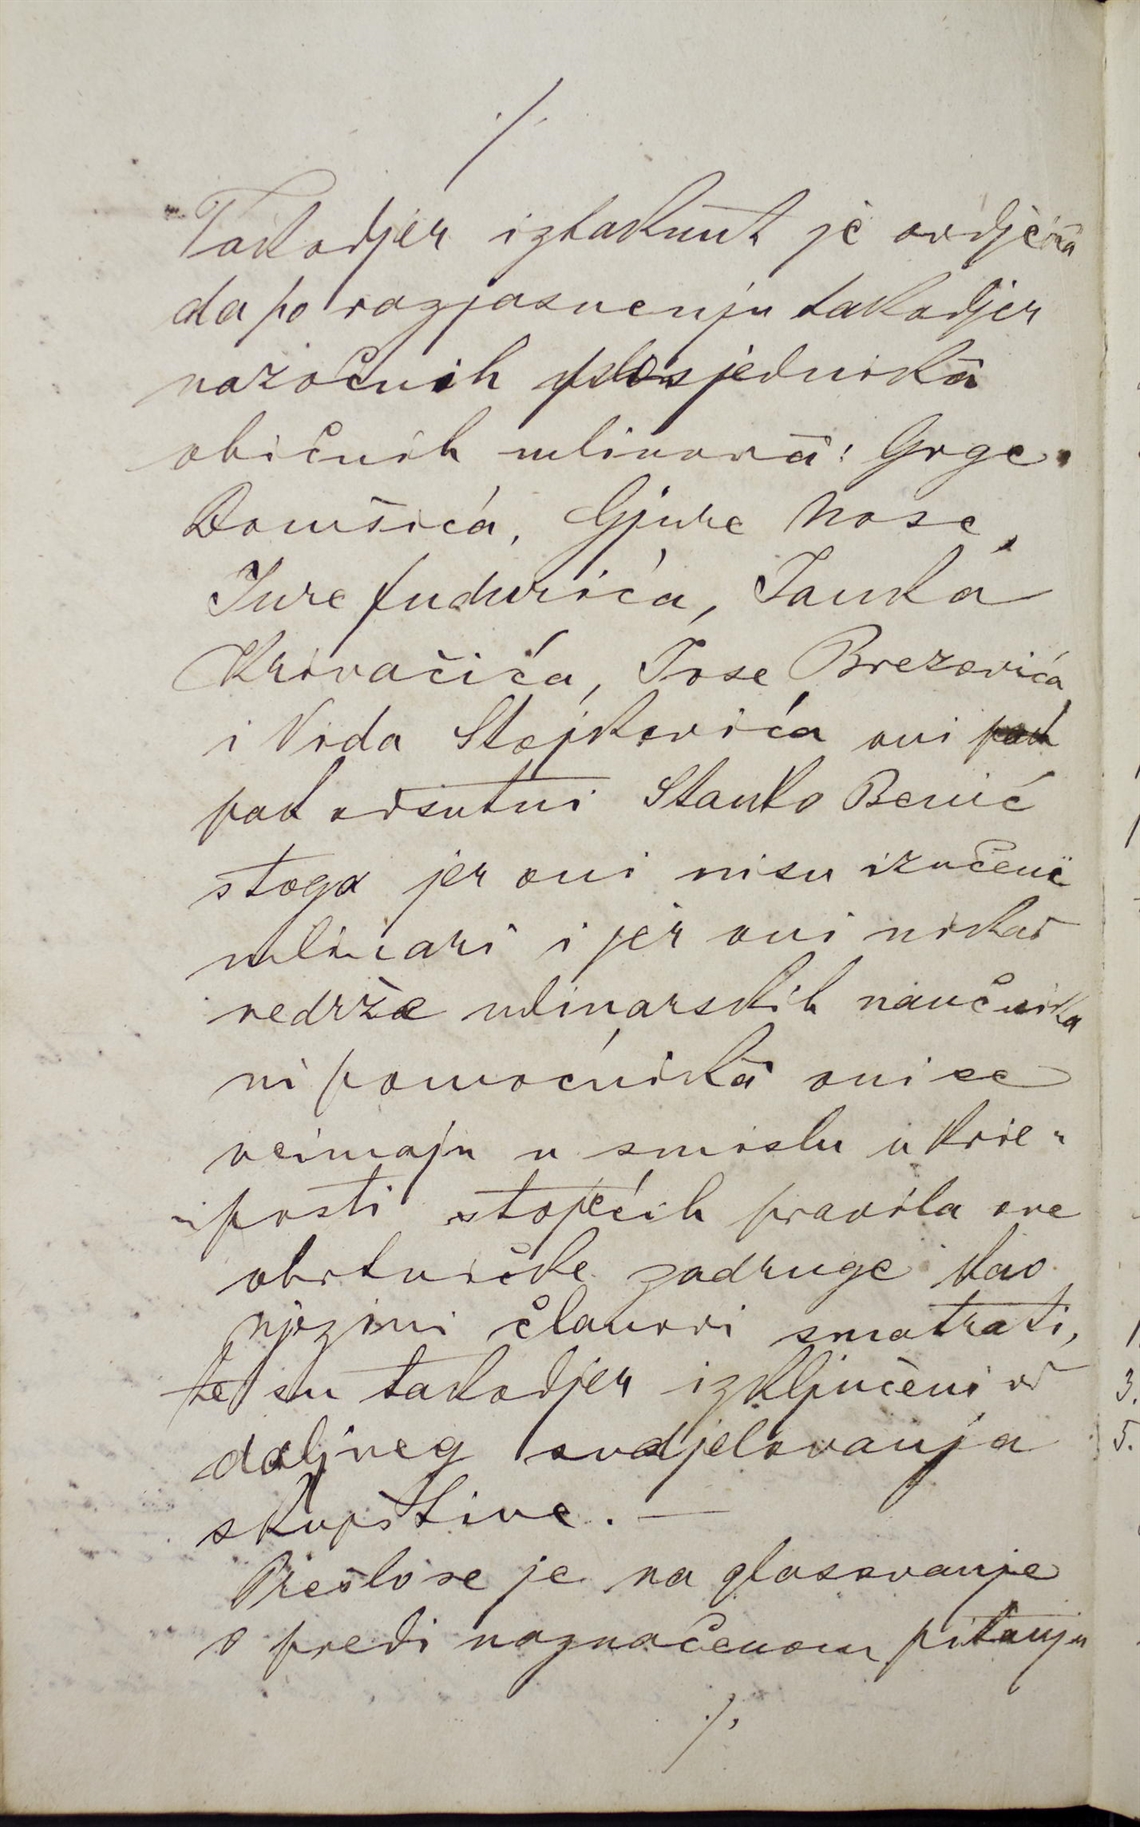 ./.
Takodjer iztaknut je ovdje
da po razjasnenju takodjer
nazočnih posjednikā
običnih mlinovā: Grge
Domšića, Gjure Nose,
Jure Fudurića, Janka
Krivačića, Jose Brezovića
i Vida Stojkovića oni
pak odsutni Stanko Benić
stoga jer oni nisu izučeni
mlinari i jer oni nikad
nedrže mlinarskih naučnika
ni pomoćnikā oni se
neimaju u smislu u krie-
-posti stojećih pravila ove
obrtničke zadruge kao
njezini članovi smatrati,
te su takodjer izključeni od
daljneg sudjelovanja
skupštine. —
Prešlo se je na glasovanje
o predi naznačenom pitanju
./.